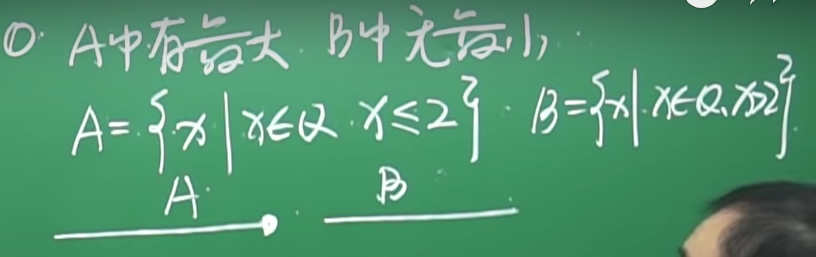 ① A中有最大 B中无最小,
A={x|x∈Q x≤2} B={x|x∈Q、x>2}
A B